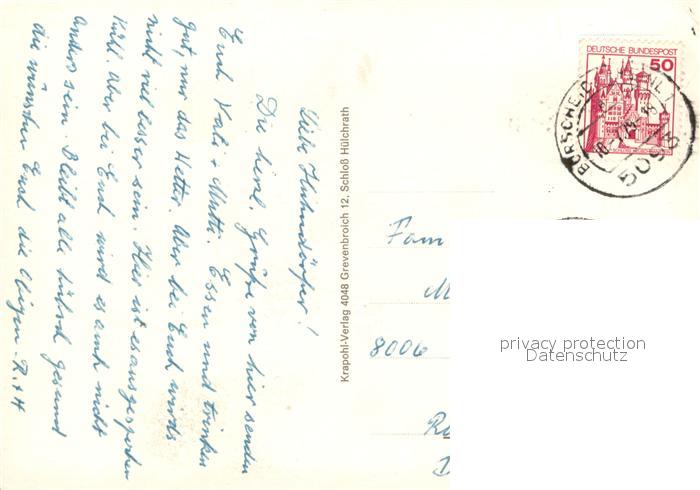 Liebe Huhndörfer!
Die herzl. Grüße von hier senden
Euch Vati + Mutti. Essen und trinken
gut, nur das Wetter. Aber bei Euch wirds
nicht viel besser sein. Hier ist es ausgesprochen
kühl. Aber bei Euch wird es auch nicht
anders sein. Bleibt alle hübsch gesund
die wünschen Euch die Obigen R. + H
Krapohl-Verlag 4048 Grevenbroich 12, Schloß Hülchrath
DEUTSCHE BUNDESPOST
50
Fam
M
8006
privacy protection
Datenschutz